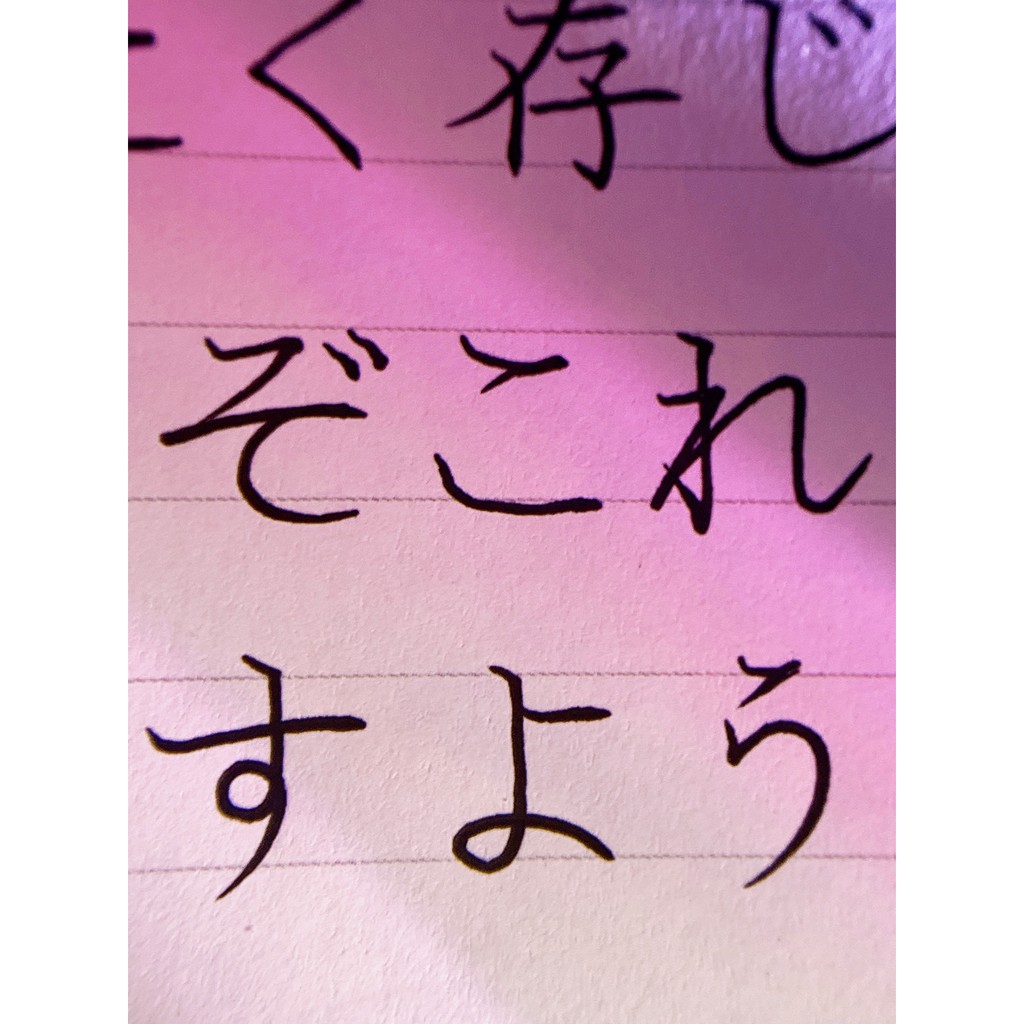 く存じ
ぞこれ
すよう